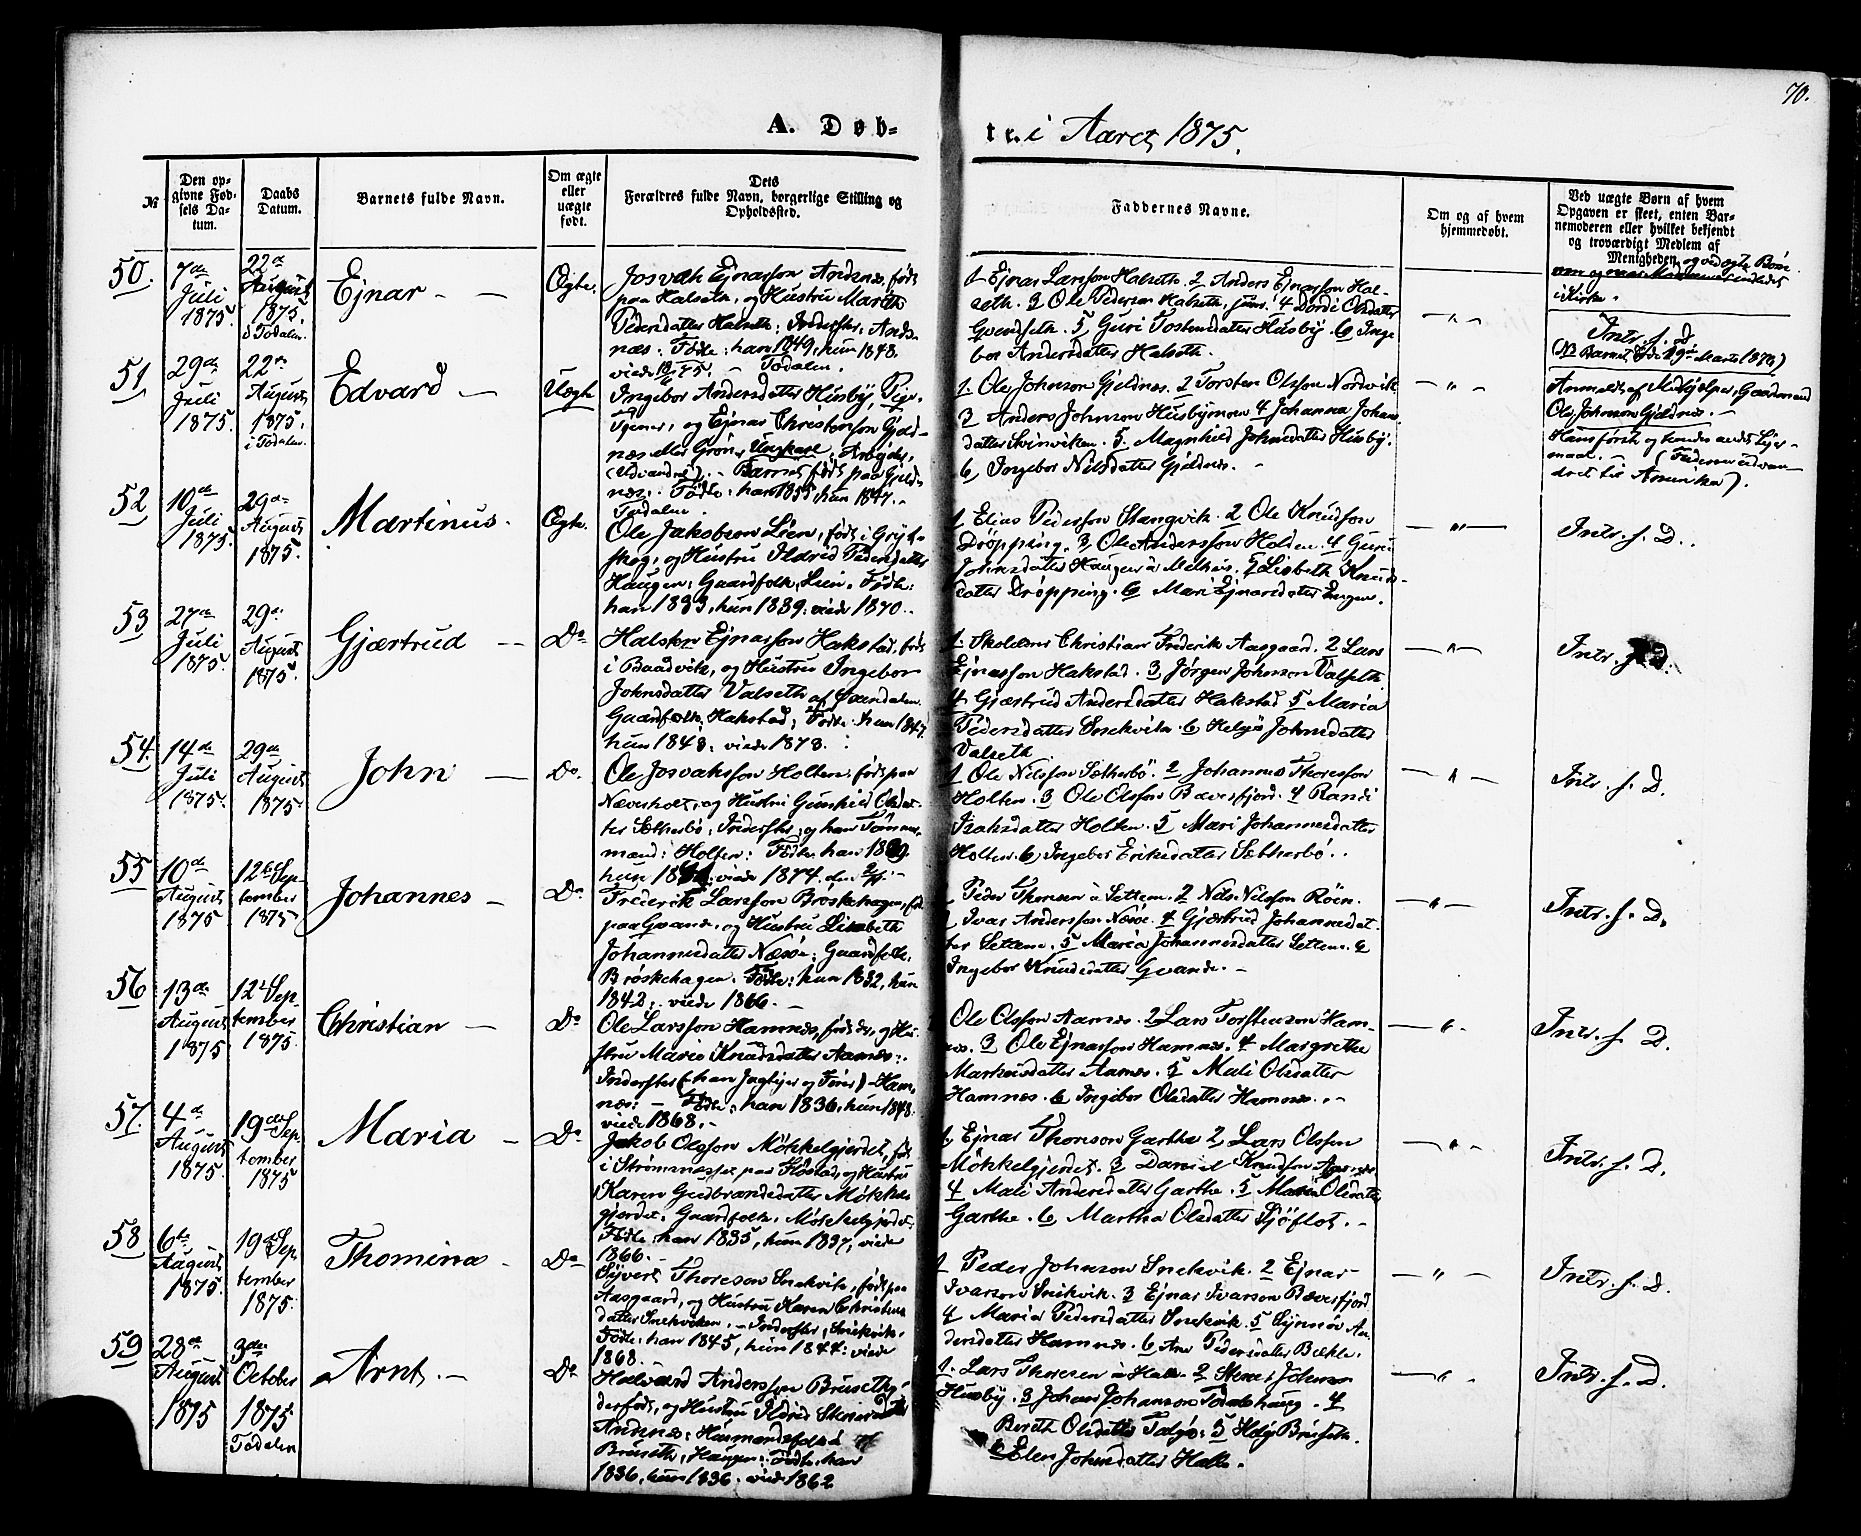 70.
A. Døb-
te. i Aaret 1875.
№
Den op-
givne Fød-
sels Da-
tum.
Daabs
Datum.
Barnets fulde Navn.
Om ægte
eller
uægte
født.
Dets
Forældres fulde Navn, borgerlige Stilling og
Opholdssted.
Faddernes Navne.
Om og af hvem
hjemmedøbt.
Ved uægte Børn af hvem
Opgaven er skeet, enten Bar-
nemoderen eller hvilket bekjendt
og troværdigt Medlem af
Menigheden
50.
7de
Juli
1875.
22de
August
1875.
i Todalen.
Ejnar
Ægte.
Josvah Ejnarsson Andsnæs, født
paa Halseth, og Hustru Marith
Pedersdatter Halseth: Inderster, Ands-
næs: Fødte: han 1849, hun 1848.
viede 75. Todalen.
1 Ejnar Larsson Halseth. 2 Anders Ejnarsson Hal-
seth. 3 Ole Pedersen Halseth, juns. 4 Dordi Olsdatter
Qvendseth. 5 Guri Tostensdatter Husby. 6 Inge
bor Andersdatter Halseth.
— " —
i Kirke.
Intr. s. D
51
29de
Juli
1875.
22de
August
1875.
i Todalen.
Edvard
Uægte
Ingebor Andersdatter Husby, Pige,
Tjener, og Ejnar Christensson Gjeld-
næs eller Grøn, Ungkarl, Arbejder,
(Udvandret). Barnet født paa Gjeld-
næs. Fødte: han 1855, hun 1847.
Todalen.
1. Ole Johnson Gjeldnæs. 2 Torsten Olsson Nordvik
3 Anders Johnson Husbymoen 4 Johanna Johns
datter Svinviken. 5. Magnhild Johnsdatter Husby.
6, Ingebor Nilsdatter Gjeldnes.
— " —
Anmeldt af Medhjelper, Gaardmand
Ole Johnson Gjeldnæs.
Hans første og hendes andet Lejer-
maal. (Faderen udvan-
dret til Amerika).
52
10de
Juli
1875.
29de
August
1875.
Martinus.
Ægte.
Ole Jakobson Lien, født i Gryt-
skog, og Hustru Ildrid Pedersdatter
Haugen: Gaardfolk, Lien. Fødte:
han 1833, hun 1839: viede 1870.
1 Elias Pedersson Stangvik. 2 Ole Knudson
Drøpping. 3 Ole Andersson Holden. 4 Guri
Johnsdatter Haugen à Melhus. 5 Lisbeth Knuds-
datter Drøpping. 6 Mari Ejnarsdatter Engen.
— " —
Intr. s. D.
53
27de
Juli
1875.
29de
August
1875.
Gjærtrud
Do
Halsten Ejnarsson Hakstad, født
i Baadvik, og Hustru Ingebor
Johnsdatter Valseth af Surendalen.
Gaardfolk, Hakstad; Fødte: han 1847
hun 1848: viede 1873.
1. Skolelærer Christian Frederik Aasgaard. 2 Lars
Ejnarsson Hakstad. 3 Jørgen Johnson Valseth
4 Gjærtrud Andersdatter Hakstad 5 Maria
Pedersdatter Snekvik. 6 Helga Johnsdatter
Valseth
— " —
Intr. s. D.
54.
14de
Juli
1875.
29de
August
1875.
John
Do.
Ole Josvahsson Holten, født paa
Næverholt, og Hustru Gunhild Olsdat-
ter Sætherbø; Inderster, og han Tømmer-
mand: Holten: Fødte: han
hun viede 1874.
1 Ole Nilsson Sætherbø. 2 Johannes Thoresson
Holten. 3 Ole Olsson Bæverfjord. 4 Randi
Isaksdatter Holten. 5 Mari Johannesdatter
Holten. 6, Ingebor Eriksdatter Sætherbø.
— " —
Intr. s. D.
55
10de
August
1875
12te Sep-
tember
1875
Johannes
Do
Frederik Larsson Brøskehagen, fød
paa Qvande, og Hustru Lisabeth
Johannesdatter Næsøe: Gaardfolk,
Brøskehagen. Fødte: han 1832, hun
1842; viede 1866.
Peder Thoresen à Settem. 2 Nils Nilsson Røen.
Ivar Andersson Næsøe. 4 Gjærtrud Johannesdat-
ter Settem. 5 Maria Johannesdatter Settem. 6
Ingebor Knudsdatter Qvande.
— " —
Intr. s. D.
56
13de
August
1875
12te Sep
tember
1875.
Christian
Do
Ole Larsson Hamnes, født der, og Hu-
stru Marie Knudsdatter Aamæs:
Inderster (han Jagtejer og Fører) Ham-
næs: Fødte: han 1836, hun 1848.
viede 1868.
Ole Olsson Aamæs. 2 Lars Torstenson Ham-
næs. 3 Ole Ejnarsson Hamnæs. 4 Margrethe
Markusdatter Aamæs. 5 Mali Olsdatter
Hamnæs. 6 Ingebor Olsdatter Hamnæs.
— " —
Intr. s. D.
57.
4de
August
1875.
19de Sep
tember
1875
Maria
Do
Jakob Olsson Møkkelgjerdet, født
i Strømnesset paa Høstad, og Hustru
Karen Gudbrandsdatter Møkkel
gjerdet. Gaardfolk, Møkkelgjerdet
Fødte: han 1835, hun 1837; viede
1866.
1, Ejnar Thoreson Garthe 2 Lars Olsson
Møkkelgjerdet. 3 Daniel Knudson Aamæs.
4 Mali Andersdatter Garthe. 5 Maria Olsdatter
Garthe. 6 Martha Olsdatter Sjøflot.
— " —
Intr. s. D.
58
6te
August
1875.
19de Sep
tember
1875.
Thomina
Do
Syvert Thoreson Snekvik, født paa
Aasgaard, og Hustru Karen Christens
datter Snekviken. Inderster, Snekvik.
Fødte: han 1845, hun 1844: viede
1868.
1 Peder Johnson Snekvik. 2 Ejnar
Ivarson Snekvik. 3 Ejnar Ivarson Bæverfjord
4 Maria Pedersdatter Snekvik. 5 Synnøv An
dersdatter Hamnæs. 6 Ane Pedersdatter Bække.
— " —
Intr. s. D.
59
28de
August
1875
3die
October
1875
Todalen
Arnt
Do
Halvard Andersson Bruseth,
der født, og Hustru Ildrid
Andnæs: Husmandsfolk à
Bruseth, Haugen: Fødte: han
1836, hun 1836. viede 1862
1. Lars Thoresen à Halle. 2 Johnson
Husby. 3 Johan Johanson Todalshaug. 4
Berith Olsdatter Talgø: 5 Bruseth.
6 Elen Johnsdatter Halle.
— " —
Intr. s. D.